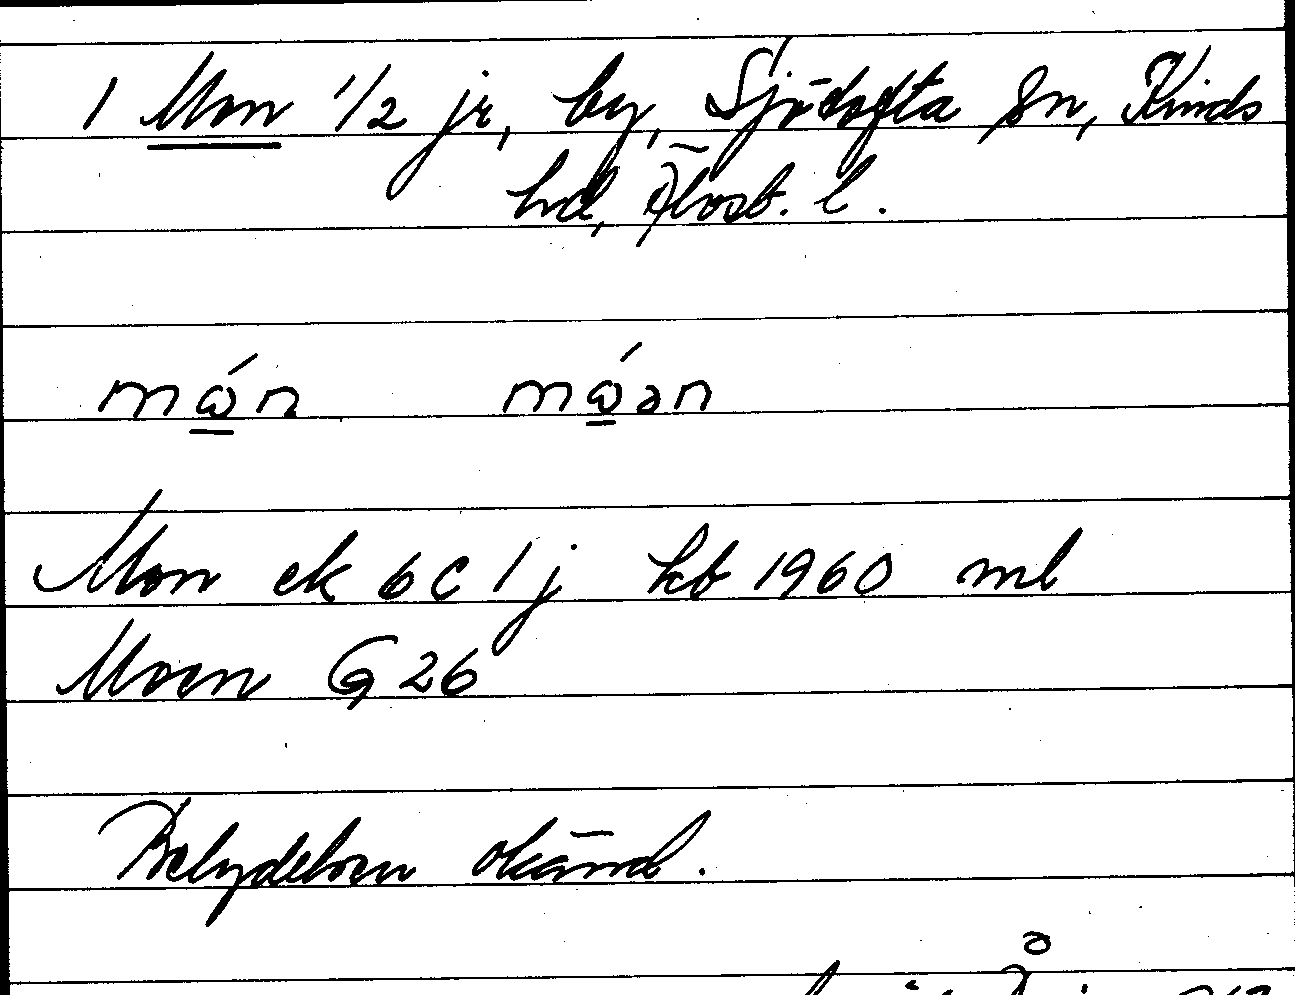 1 Mon 1/2 jr, by, Sjötofta Sn, Kinds
hd, Älvsb. l.
mǫ́n mǫ́ən
Mon ek 6 C 1 j kb 1960 ml
Moen G 26
Betydelsen okänd.